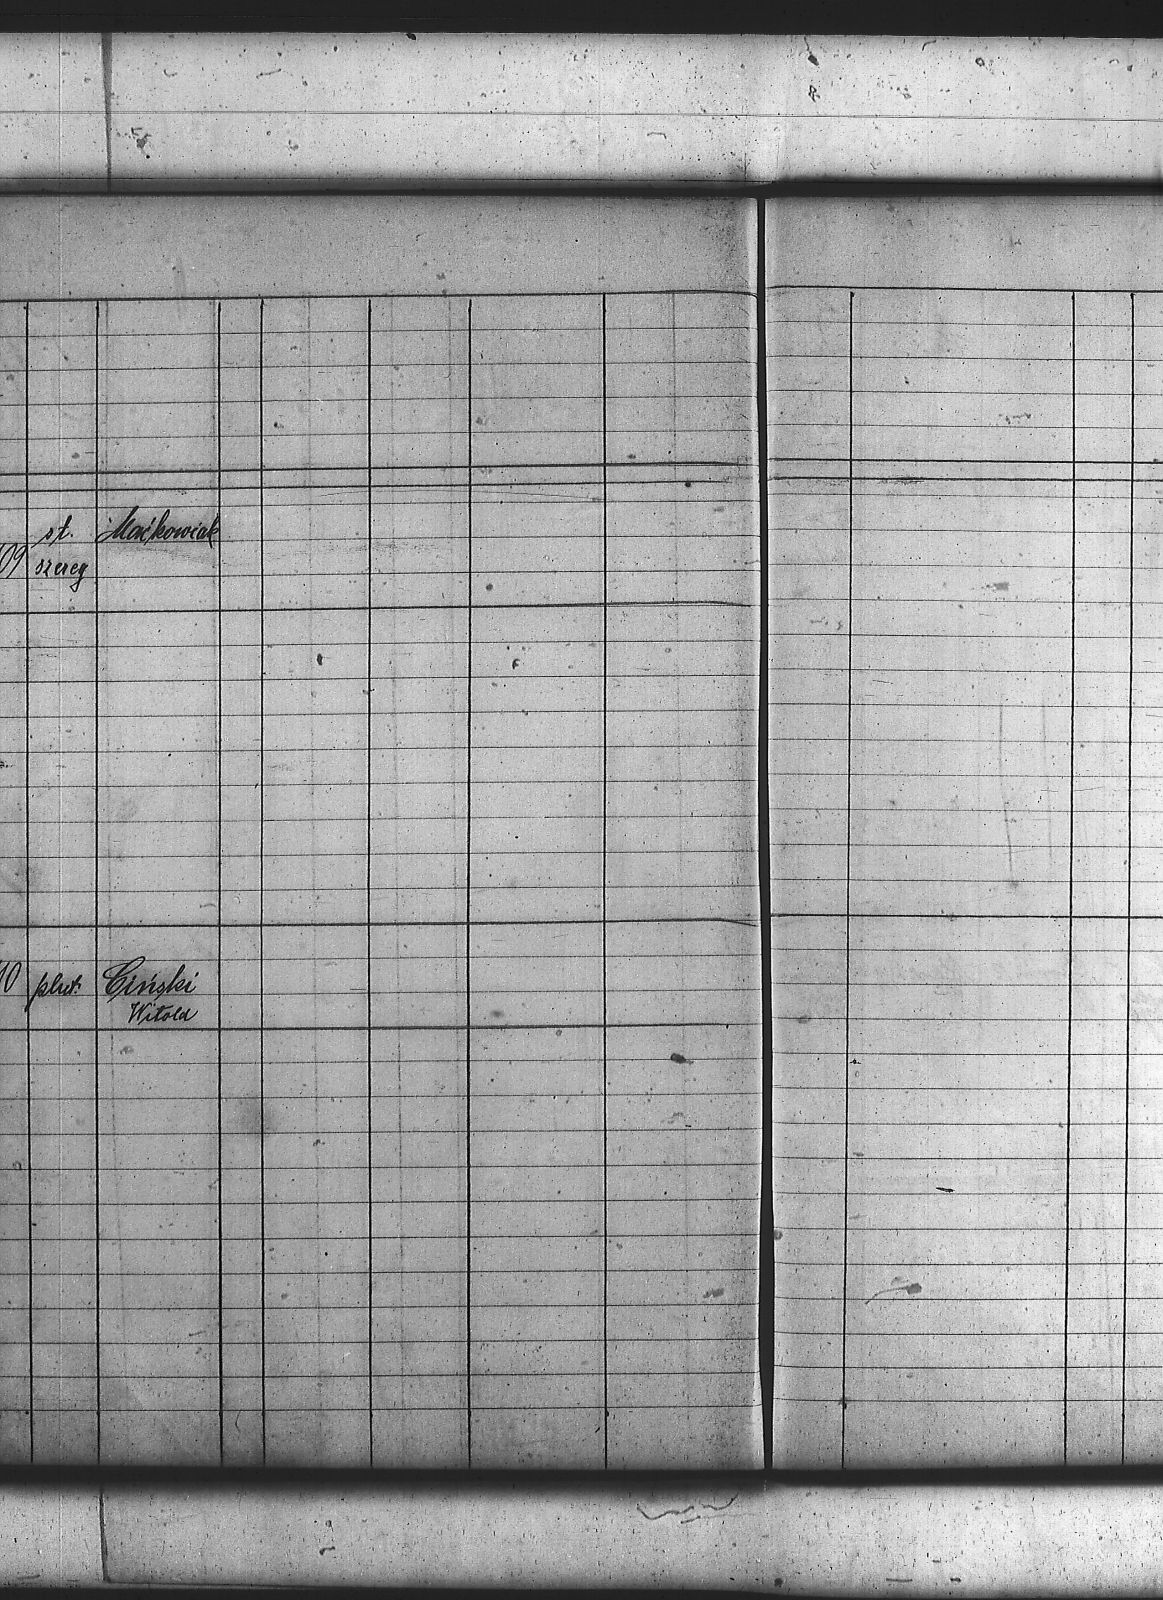 st. Maćkowiak
09 szereg
10 plut. Ciński
Witold